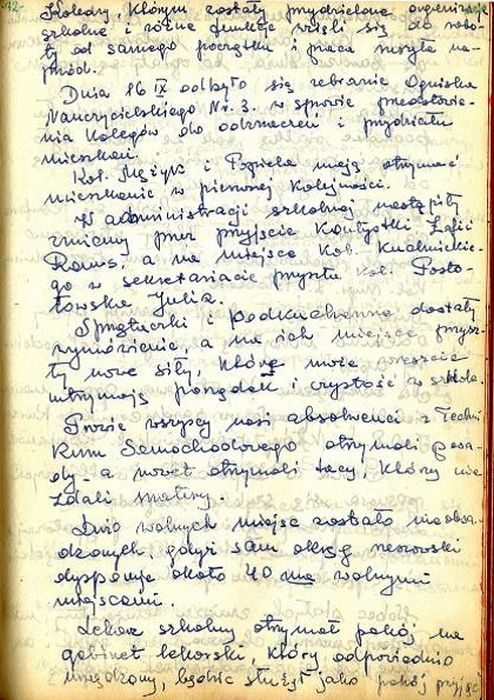 -42-
Koledzy, którym zostały przydzielone organizacje
szkolne i różne funkcje wzięli się do robo-
ty od samego początku i praca ruszyła na-
przód.
Dnia 16 IX odbyło się zebranie Ogniska
Nauczycielskiego Nr. 3. w sprawie przedstawie-
nia Kolegów do odznaczeń i przydziału
mieszkań.
Kol. Mężyk i mają otrzymać
mieszkanie w pierwszej kolejności.
W administracji szkolnej nastąpiły
zmiany przez przyjście Zofii
a na miejsce kol.
go w sekretariacie przyszła kol.
Julia.
Sprzątaczki i podkuchenna dostały
wymówienie, a na ich miejsce przysz-
ły nowe siły, które może wreszcie
utrzymają porządek i czystość w szkole.
Prawie wszyscy nasi absolwenci z Techni
kum Samochodowego otrzymali posa-
dy - a nawet otrzymali tacy, którzy nie
zdali matury.
Dużo wolnych miejsc zostało nieobsa-
dzonych, gdyż sam okręg
dysponuje około 40 wolnymi
miejscami.
Lekarz szkolny otrzymał pokój na
gabinet lekarski, który odpowiednio
urządzony, będzie służył jako pokój przyjęć